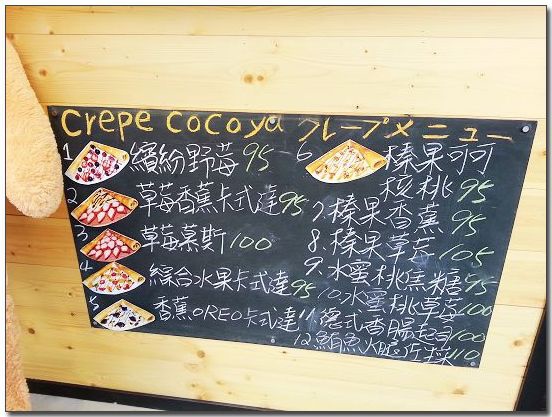 Crepe cocoya クレープメニュー
1 繽紛野莓 95
2 草莓香蕉卡式達 95
3 草莓慕斯 100
4 綜合水果卡式達 95
5 香蕉OREO卡式達
6 榛果可可
核桃 95
7. 榛果香蕉 95
8. 榛果草莓 105
9. 水蜜桃焦糖 95
10. 水蜜桃草莓 100
11. 德式香腸起司 100
12. 鮪魚火腿 110